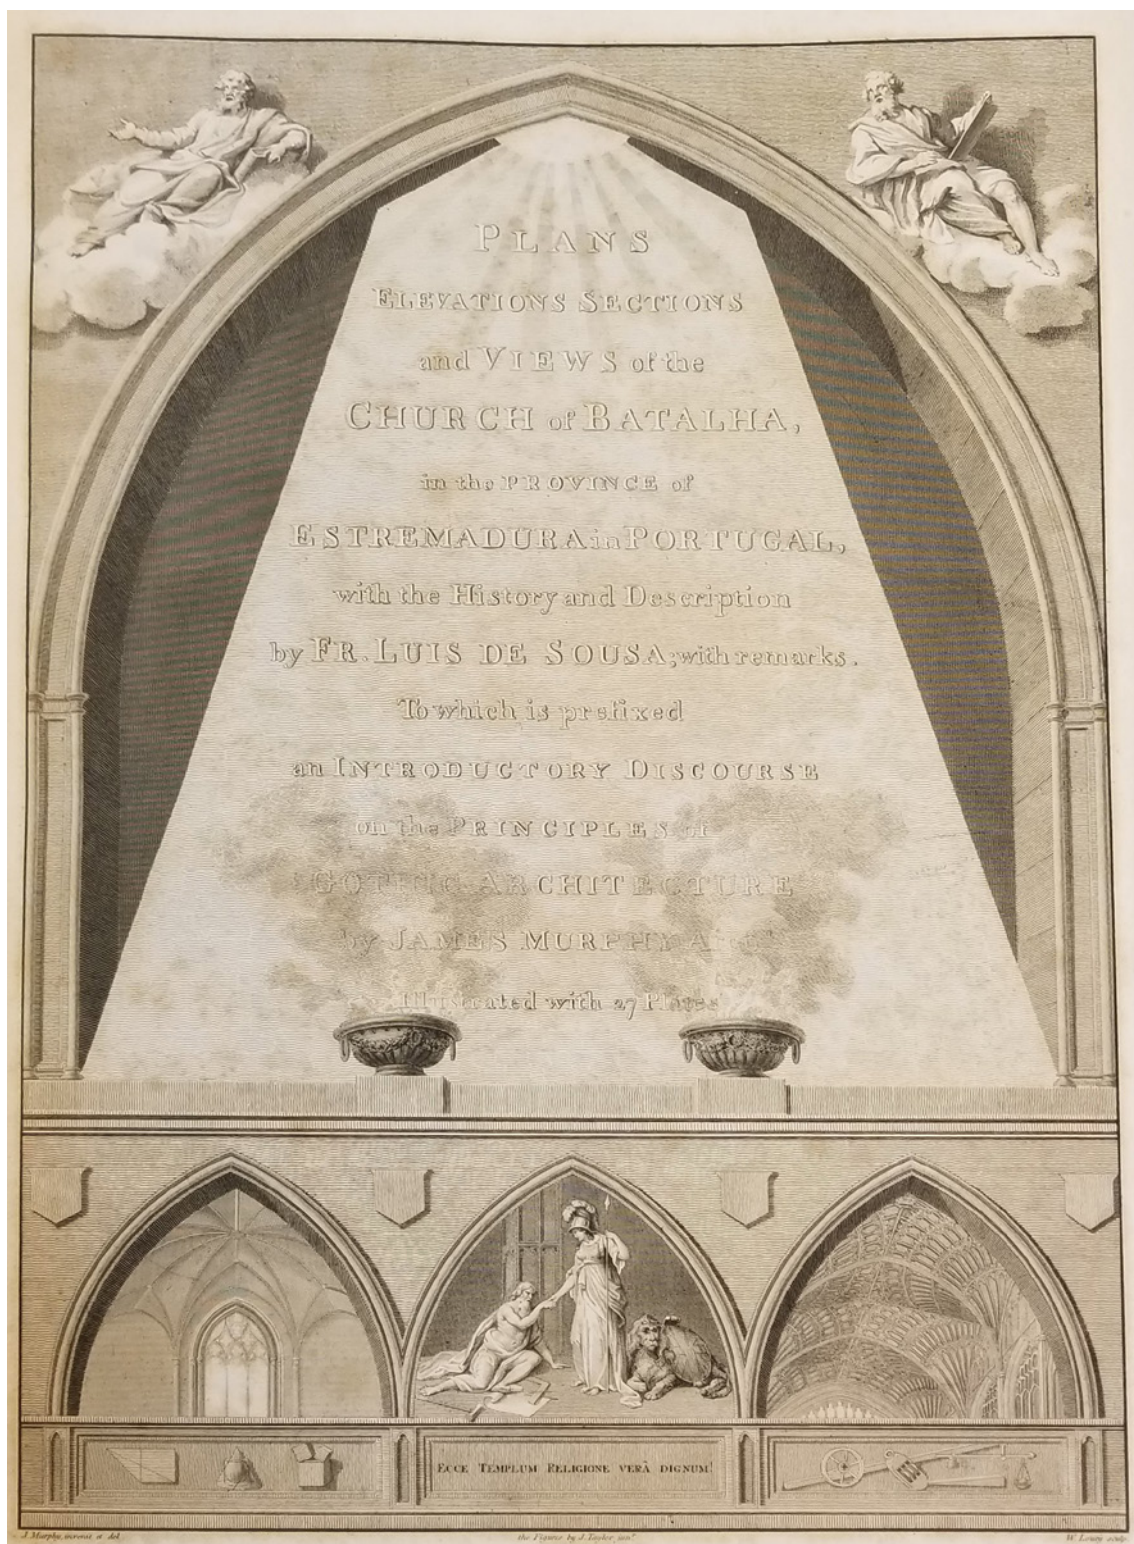 PLANS
ELEVATIONS SECTIONS
and VIEWS of the
CHURCH of BATALHA,
in the PROVINCE of
ESTREMADURA in PORTUGAL,
with the History and Description
by FR. LUIS DE SOUSA; with remarks.
To which is prefixed
an INTRODUCTORY DISCOURSE
on the PRINCIPLES of
GOTHIC ARCHITECTURE
by JAMES MURPHY
Illustrated with 27 Plates
ECCE TEMPLUM RELIGIONE VERÂ DIGNUM!
J. Murphy, invenit et del.
the Figures by J. Taylor jun.r
W. Lowry sculp.